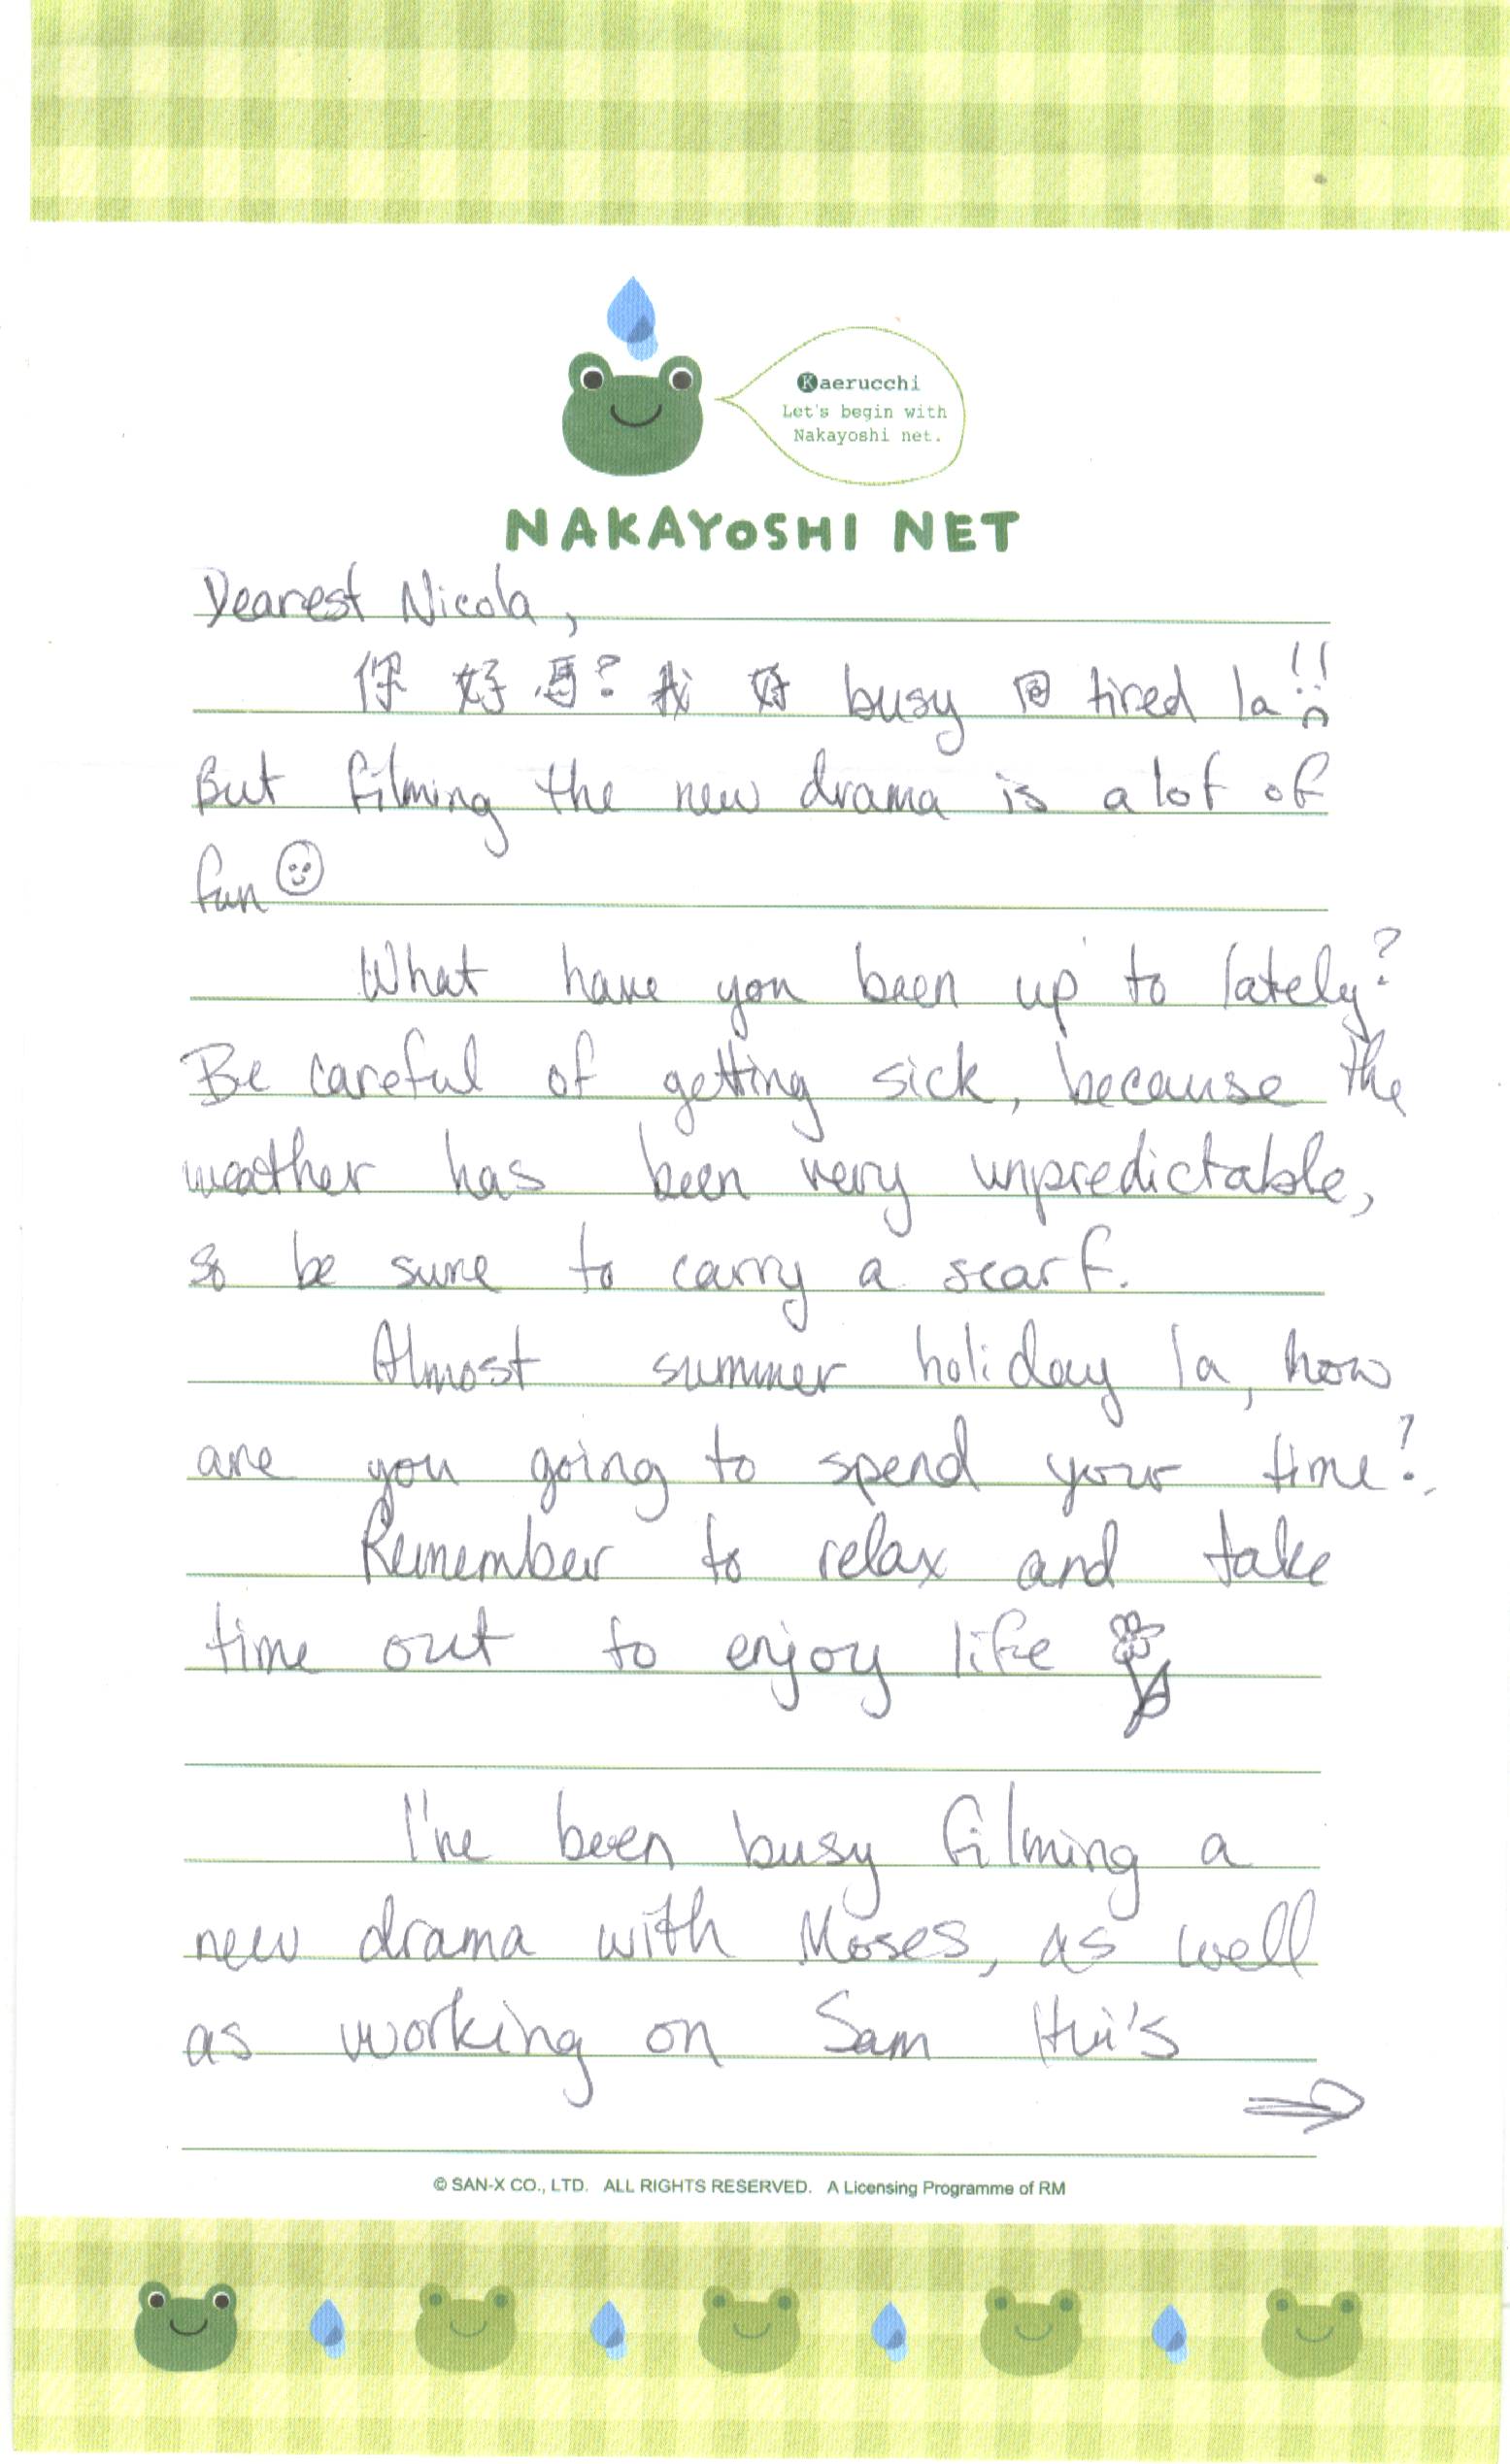 Kaerucchi
Let's begin with
Nakayoshi net.
NAKAYOSHI NET
Dearest Nicola,
你 好 馬? 我 好 busy 同 tired la!!
But filming the new drama is a lot of
fun
What have you been up to lately?
Be careful of getting sick, because the
weather has been very unpredictable,
so be sure to carry a scarf.
Almost summer holiday la, how
are you going to spend your time?
Remember to relax and take
time out to enjoy life
I've been busy filming a
new drama with Moses, as well
as working on Sam Hui's
© SAN-X CO., LTD. ALL RIGHTS RESERVED. A Licensing Programme of RM